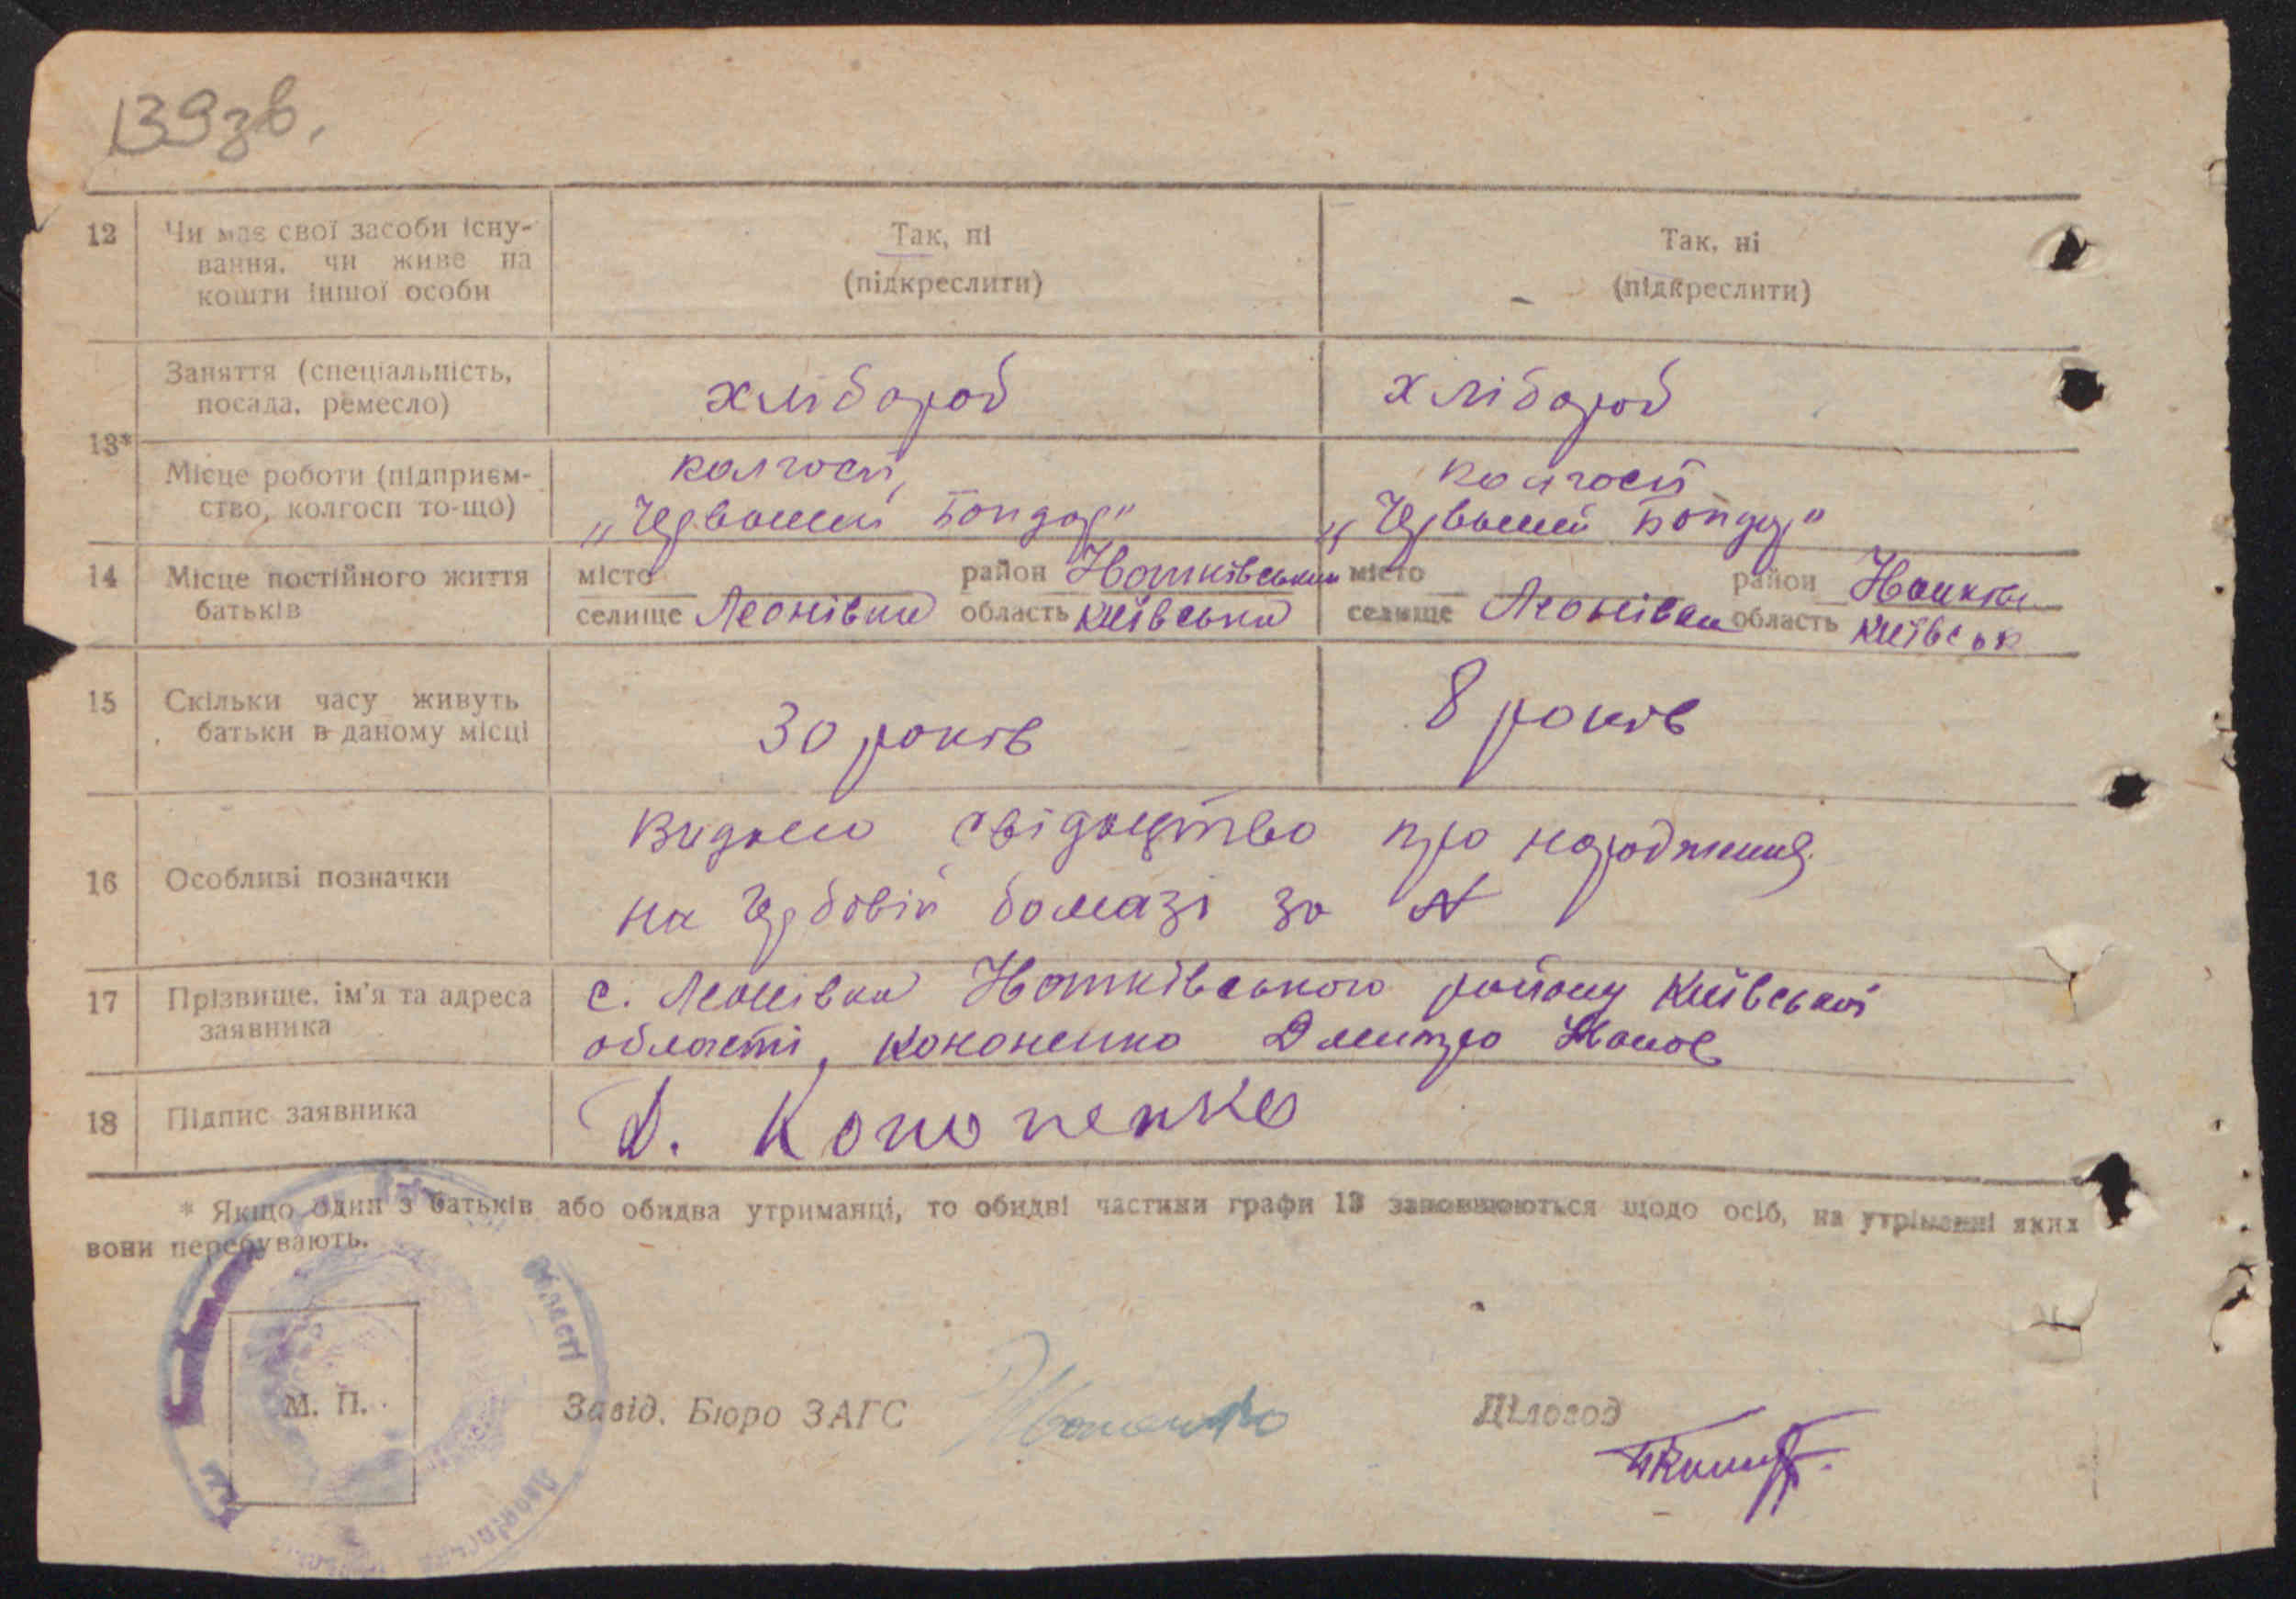 139 зв.
12 Чи має свої засоби існу-
вання, чи живе на
кошти іншої особи
Так, ні
(підкреслити)
Так, ні
(підкреслити)
13*
Заняття (спеціальність,
посада, ремесло)
хлібороб
хлібороб
Місце роботи (підприєм-
ство, колгосп то-що)
колгосп
„Червоний Бондар"
колгосп
„Червоний Бондар"
14 Місце постійного життя
батьків
місто район
селище Леонівка область Київська
місто район
селище Леонівка область Київськ
15 Скільки часу живуть
батьки в даному місці
30 років
8 років
16 Особливі позначки
Видано свідоцтво про народження
на гербовій бомазі за №
17 Прізвище, ім'я та адреса
заявника
с. Леонівка району Київської
області, Кононенко Дмитро
18 Підпис заявника
Д. Кононенко
* Якщо один з батьків або обидва утриманці, то обидві частини графи 13 заповнюються щодо осіб, на утріманні яких
вони перебувають.
області
М. П.
Завід. Бюро ЗАГС
Діловод